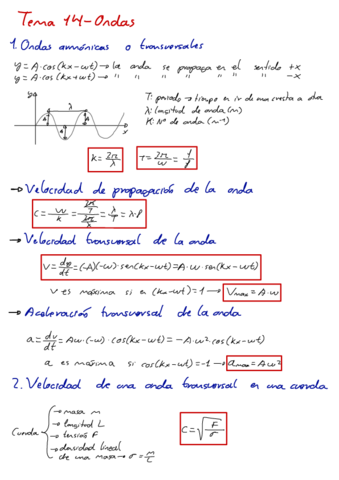 Tema 14-Ondas
1. Ondas armónicas o transversales
y = A·cos(kx-wt) → la onda se propaga en el sentido +x
y = A·cos(kx+wt) → " " " " " " " -x
T: periodo → tiempo en ir de una cresta a otra
λ: longitud de onda (m)
K: Nº de onda (m⁻¹)
y
λ
A
A
x
K = 2π/λ
T = 2π/w = 1/f
→ Velocidad de propagación de la onda
C = w/k = (2π/T)/(2π/λ) = λ/T = λ·f
→ Velocidad transversal de la onda
V = dy/dt = (-A)(-w)·sen(kx-wt) = A·w·sen(kx-wt)
V es máxima si sen(kx-wt) = 1 → Vmax = A·w
→ Aceleración transversal de la onda
a = dv/dt = Aw·(-w)·cos(kx-wt) = -A·w²·cos(kx-wt)
a es máxima si cos(kx-wt) = -1 → amax = Aw²
2. Velocidad de una onda transversal en una cuerda
Cuerda
→ masa m
→ longitud L
→ tensión F
→ densidad lineal de una masa → σ = m/L
C = √(F/σ)